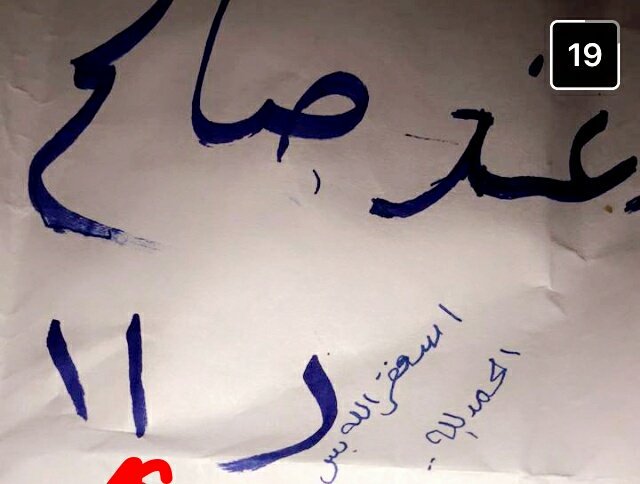 19
عند صالح
استغفر الله بس
الحمدلله ..